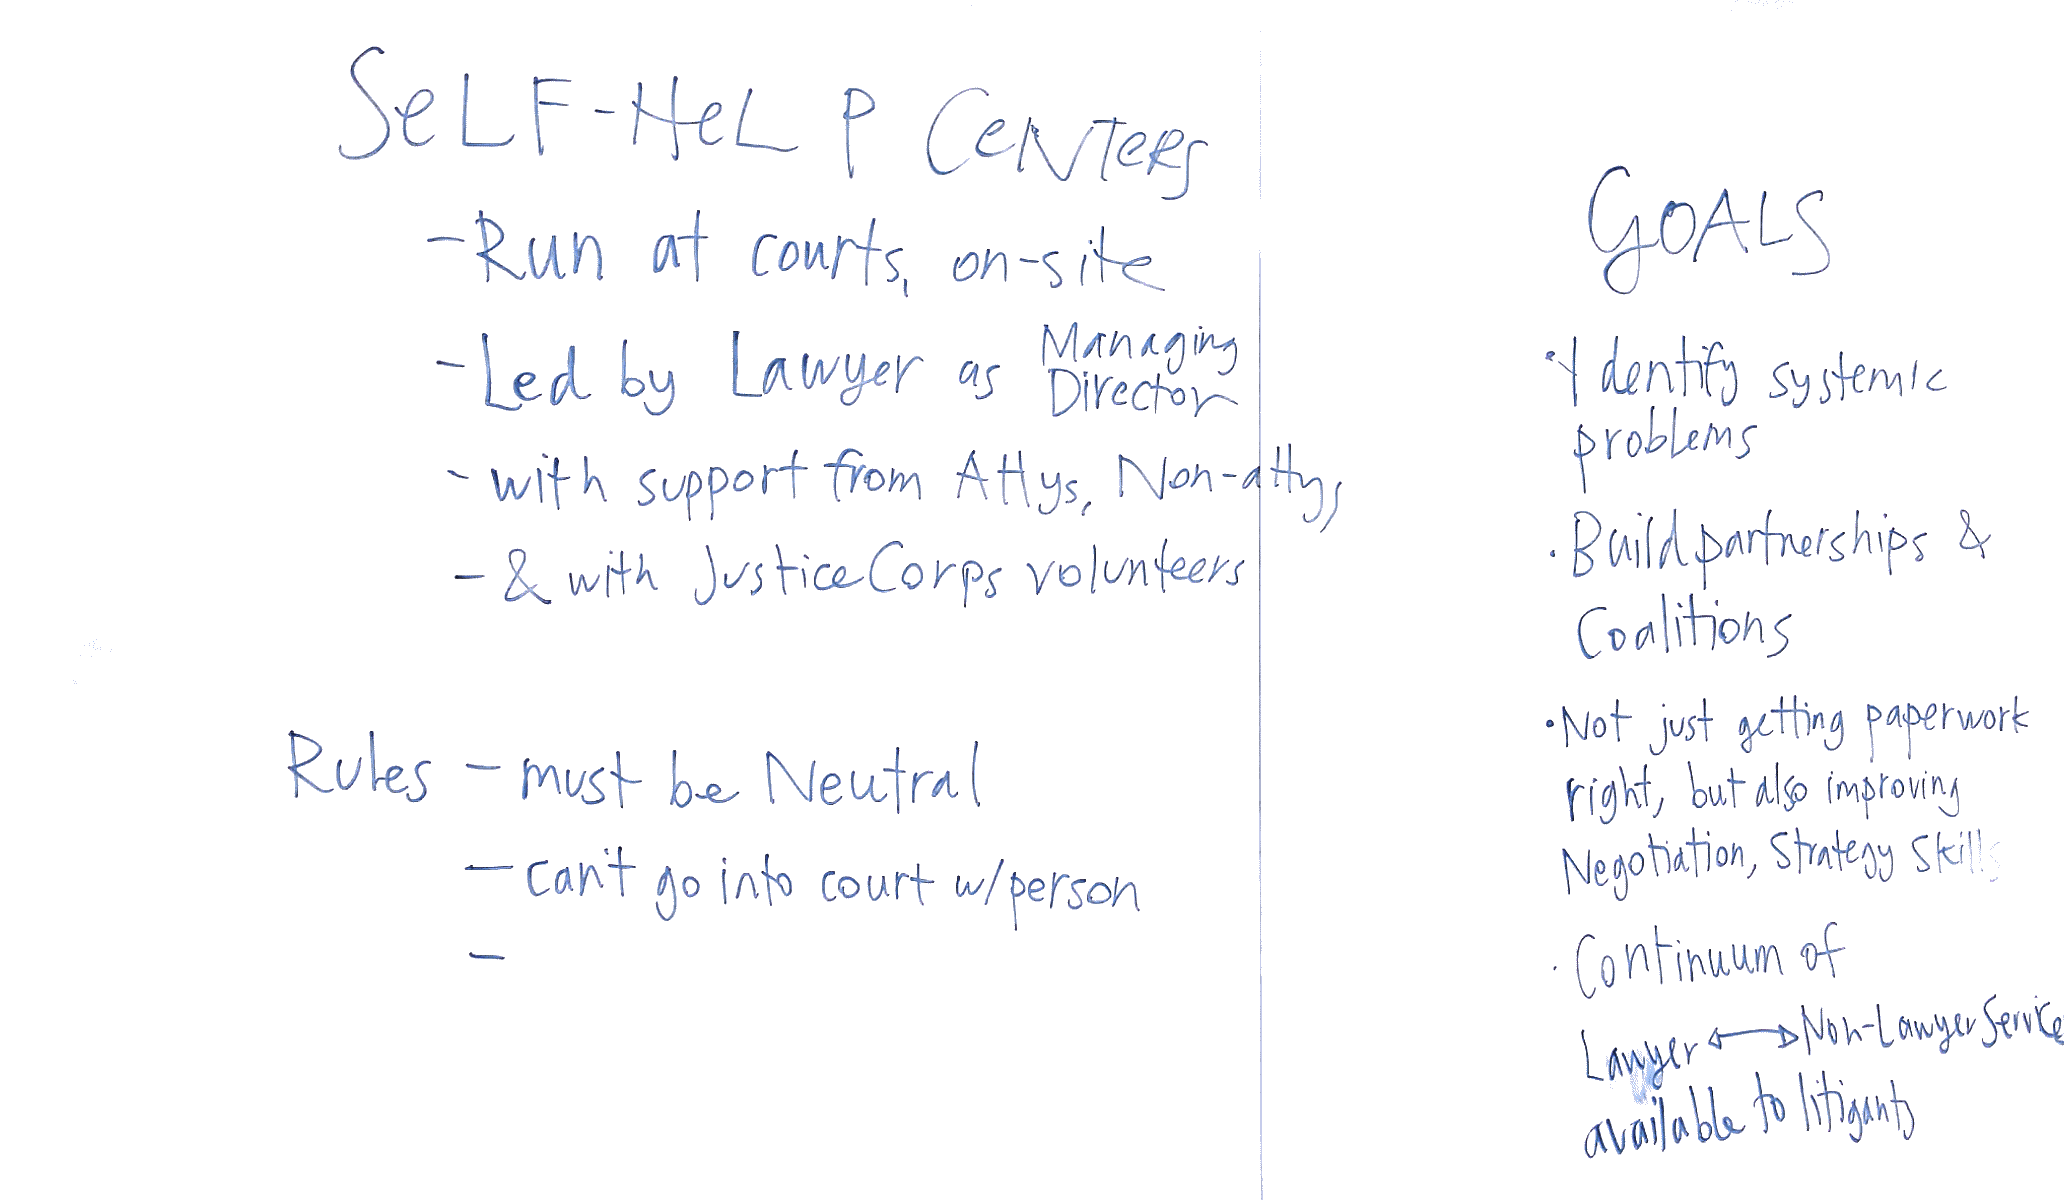 SeLF-HeLP CeNTeRS
- Run at courts, on-site
- Led by Lawyer as Managing
Director
- with support from Attys, Non-attys,
- & with JusticeCorps volunteers
Rules - must be Neutral
- can't go into court w/person
-
GOALS
• Identify systemic
problems
• Build partnerships &
Coalitions
• Not just getting paperwork
right, but also improving
Negotiation, Strategy Skills
• Continuum of
Lawyer ↔ Non-Lawyer Service
available to litigants